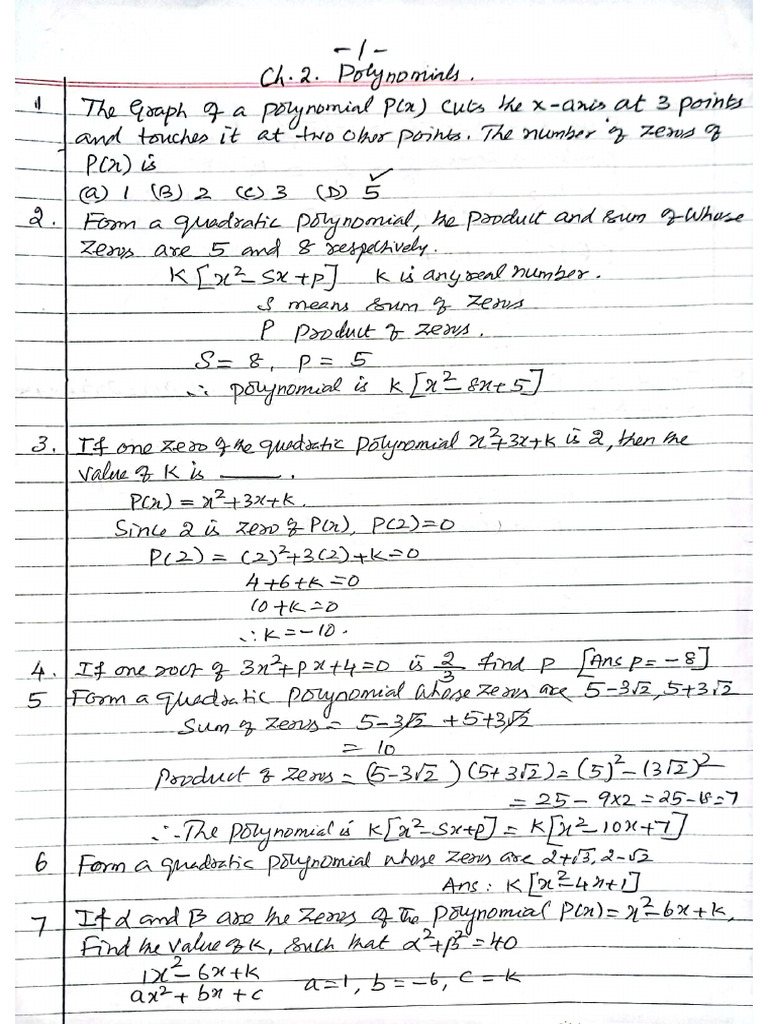 -1-
Ch.2. Polynomials.
1 The Graph of a polynomial P(x) cuts the x-axis at 3 points
and touches it at two other points. The number of zeros of
P(x) is
(a) 1 (B) 2 (C) 3 (D) 5 ✓
2. Form a quadratic polynomial, the product and sum of whose
zeros are 5 and 8 respectively.
K[x²-Sx+p] K is any real number.
S means sum of zeros
P product of zeros.
S = 8, P = 5
∴ polynomial is K[x²-8x+5]
3. If one zero of the quadratic polynomial x²+3x+k is 2, then the
value of K is ____.
P(x) = x²+3x+k.
Since 2 is zero of P(x), P(2)=0
P(2) = (2)²+3(2)+k=0
4+6+k=0
10+k=0
∴ k=-10.
4. If one root of 3x²+px+4=0 is 2/3 find p [Ans p=-8]
5 Form a quadratic polynomial whose zeros are 5-3√2, 5+3√2
Sum of zeros = 5-3√2 +5+3√2
= 10
Product of zeros = (5-3√2)(5+3√2) = (5)²-(3√2)²
= 25-9×2 = 25-18=7
∴ The polynomial is K[x²-Sx+p] = K[x²-10x+7]
6 Form a quadratic polynomial whose zeros are 2+√3, 2-√2
Ans: K[x²-4x+1]
7 If α and β are the zeros of the polynomial P(x) = x²-6x+k,
Find the value of k, such that α²+β²=40
1x²-6x+k
ax²+bx+c a=1, b=-6, c=k